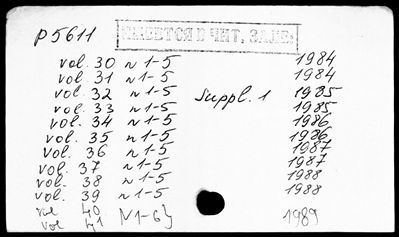 p 5611 ИМЕЕТСЯ В ЧИТ, ЗАЛЕ.
vol. 30 n 1-5 1984
vol. 31 n 1-5 1984
vol. 32 n 1-5 Suppl. 1 1985
vol. 33 n 1-5 1985
vol. 34 n 1-5 1986
vol. 35 n 1-5 1986
vol. 36 n 1-5 1987
vol. 37 n 1-5 1987
vol. 38 n 1-5 1988
vol. 39 n 1-5 1988
vol 40 N1-6} 1989
vol 41